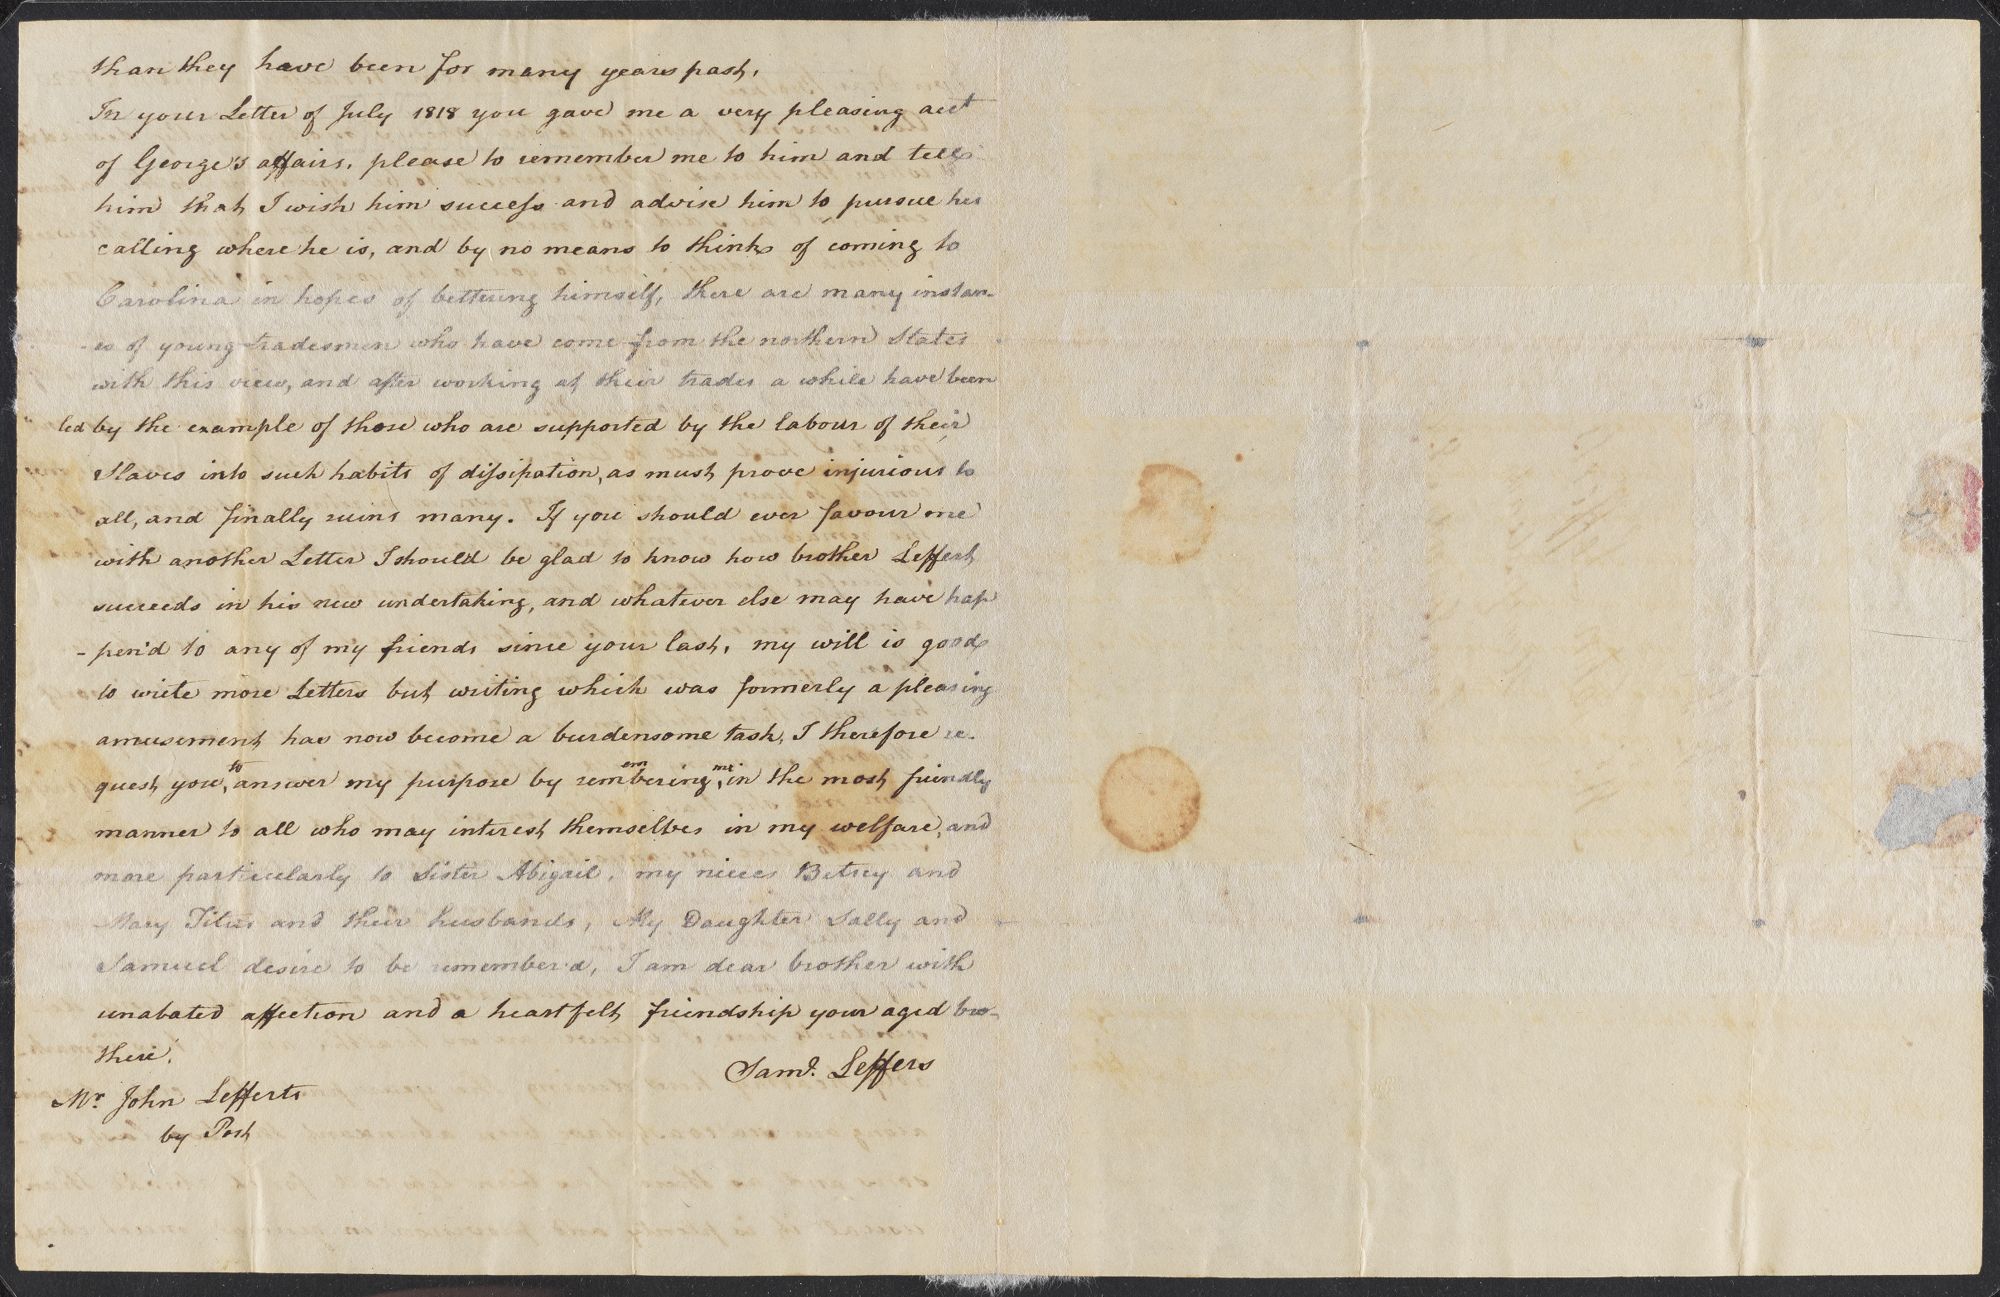 than they have been for many years past.
In your Letter of July 1818 you gave me a very pleasing acct
of George's affairs, please to remember me to him and tell
him that I wish him success and advise him to pursue his
calling where he is, and by no means to think of coming to
Carolina in hopes of bettering himself, there are many instan-
-es of young tradesmen who have come from the northern States
with this view, and after working at their trades a while have been
led by the example of those who are supported by the labour of their
Slaves into such habits of dissipation, as must prove injurious to
all, and finally ruins many. If you should ever favour me
with another Letter I should be glad to know how brother Leffert
succeeds in his new undertaking, and whatever else may have hap
-pen'd to any of my friends since your last, my will is good
to write more Letters but writing which was formerly a pleasing
amusement has now become a burdensome task, I therefore re-
quest you to answer my purpose by remembering me in the most friendly
manner to all who may interest themselves in my welfare, and
more particularly to Sister Abigail, my nieces Betsey and
Mary Titus and their husbands, My Daughter Sally and
Samuel desire to be remember'd, I am dear brother with
unabated affection and a heartfelt friendship your aged bro-
ther.
Saml. Leffers
Mr. John Lefferts
by Post